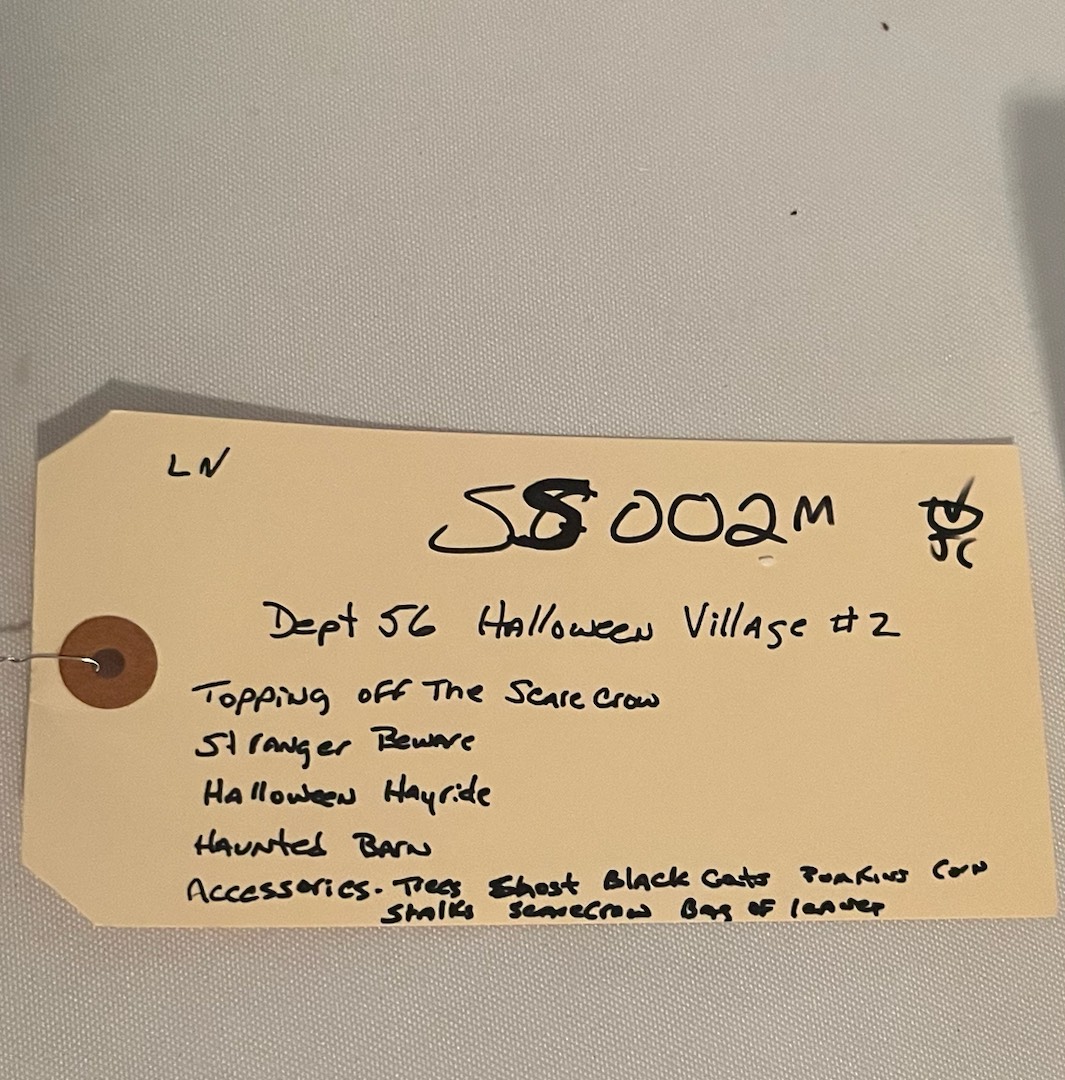 LN
SS002M
JC
Dept 56 Halloween Village #2
Topping off The Scarecrow
Stranger Beware
Halloween Hayride
Haunted Barn
Accessories. Trees Ghost Black Cats Pumkins Corn
Stalks Scarecrow Bag of leaves